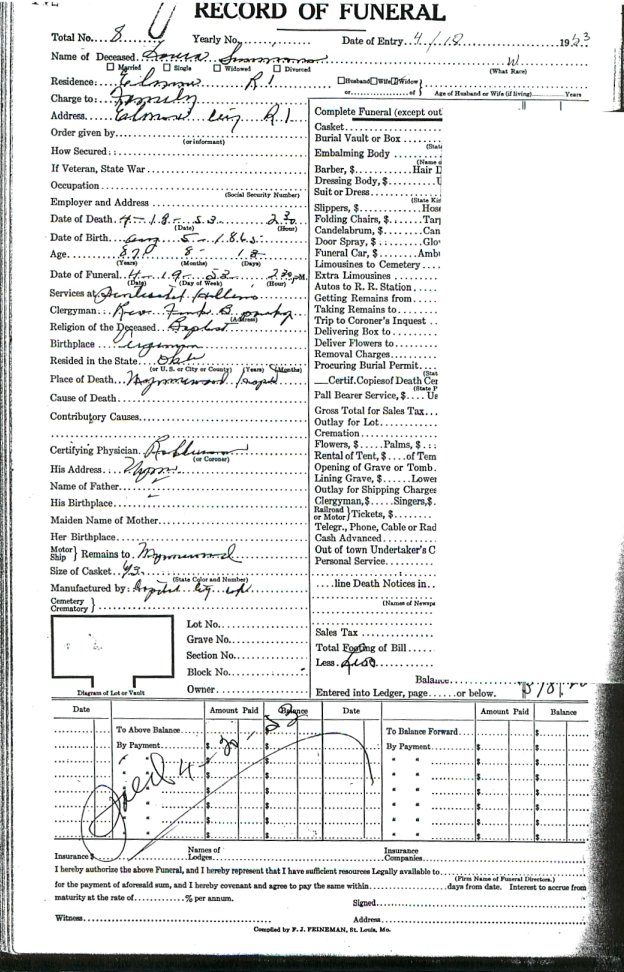 RECORD OF FUNERAL
Total No. 8 Yearly No. Date of Entry 4/18 1953
Name of Deceased W
Married Single Widowed Divorced (What Race)
Residence: R 1 Husband Wife Widow
or of Age of Husband or Wife (if living) Years
Charge to: Family
Address. City R 1
Order given by
(or informant)
How Secured:
If Veteran, State War
Occupation
(Social Security Number)
Employer and Address
Date of Death 4-18-53 2 30
(Date) (Hour)
Date of Birth Aug 5-1865
Age 87 8 13
(Years) (Months) (Days)
Date of Funeral 4-19-53 2 30 P.M.
(Date) (Day of Week) (Hour)
Services at
Clergyman Rev.
(Address)
Religion of the Deceased Baptist
Birthplace
Resided in the State Okla
(or U. S. or City or County) (Years) (Months)
Place of Death Wynnewood
Cause of Death
Contributory Causes
Certifying Physician
(or Coroner)
His Address
Name of Father
His Birthplace
Maiden Name of Mother
Her Birthplace
Motor Ship } Remains to Wynnewood
Size of Casket
(State Color and Number)
Manufactured by: Capitol City
Cemetery Crematory }
Lot No.
Grave No.
Section No.
Block No.
Owner
Diagram of Lot or Vault
Complete Funeral (except out
Casket
Burial Vault or Box
(Stat
Embalming Body
(Name o
Barber, $ Hair D
Dressing Body, $
Suit or Dress
(State Kin
Slippers, $ Hose
Folding Chairs, $ Tar
Candelabrum, $ Can
Door Spray, $ Glo
Funeral Car, $ Amb
Limousines to Cemetery
Extra Limousines
Autos to R. R. Station
Getting Remains from
Taking Remains to
Trip to Coroner's Inquest
Delivering Box to
Deliver Flowers to
Removal Charges
Procuring Burial Permit
(Stat
Certif. Copies of Death Cer
(State P
Pall Bearer Service, $ Us
Gross Total for Sales Tax
Outlay for Lot
Cremation
Flowers, $ Palms, $
Rental of Tent, $ of Tem
Opening of Grave or Tomb
Lining Grave, $ Lowe
Outlay for Shipping Charges
Clergyman, $ Singers, $
Railroad or Motor } Tickets, $
Telegr., Phone, Cable or Rad
Cash Advanced
Out of town Undertaker's C
Personal Service
line Death Notices in
(Names of Newsp
Sales Tax
Total Footing of Bill
Less
Balance
Entered into Ledger, page or below.
Date Amount Paid Balance Date Amount Paid Balance
To Above Balance $ To Balance Forward $
By Payment $ By Payment $
Paid 4-20-53
Insurance $ Names of Lodges Insurance Companies
I hereby authorize the above Funeral, and I hereby represent that I have sufficient resources Legally available to
(Firm Name of Funeral Directors.)
for the payment of aforesaid sum, and I hereby covenant and agree to pay the same within days from date. Interest to accrue from
maturity at the rate of % per annum.
Signed
Witness Address
Compiled by F. J. FEINEMAN, St. Louis, Mo.